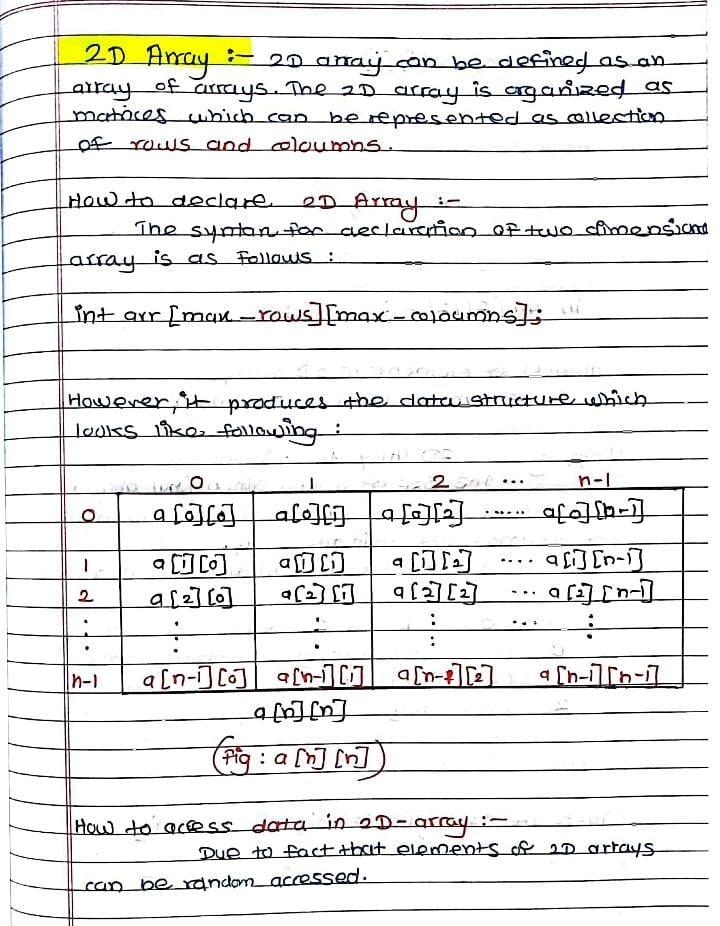 2D Array :- 2D array can be defined as an
array of arrays. The 2D array is organized as
matrices which can be represented as collection
of rows and coloumns.
How to declare 2D Array :-
The syntax for declaration of two dimensional
array is as follows :
int arr [max-rows][max-coloumns];
However, it produces the data structure which
looks like following :
0 1 2 ... n-1
0 a[0][0] a[0][1] a[0][2] ...... a[0][n-1]
1 a[1][0] a[1][1] a[1][2] .... a[1][n-1]
2 a[2][0] a[2][1] a[2][2] ... a[2][n-1]
: : : : ... :
n-1 a[n-1][0] a[n-1][1] a[n-1][2] a[n-1][n-1]
a[n][n]
(fig : a[n][n])
How to access data in 2D-array :-
Due to fact that elements of 2D arrays
can be random accessed.